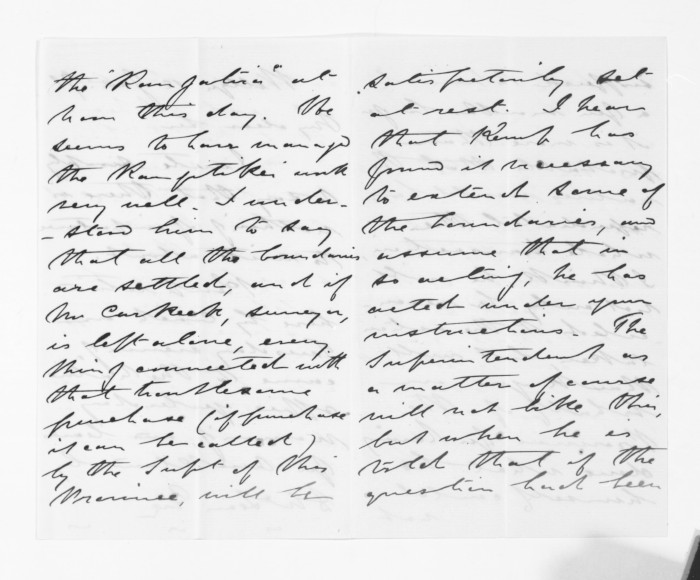 the "Rangatira" at
noon this day. He
seems to have managed
the Rangitikei work
very well. I under-
-stand him to say
that all the boundaries
are settled, and if
Mr Carkeek, surveyor,
is left alone, every
thing connected with
that troublesome
purchase (if purchase
it can be called)
by the Supt of this
Province, will be
satisfactorily set
at rest. I hear
that Kemp has
found it necessary
to extend some of
the boundaries, and
assume that in
so acting, he has
acted under your
instructions. The
Superintendent as
a matter of course
will not like this,
but when he is
told that if the
question had been